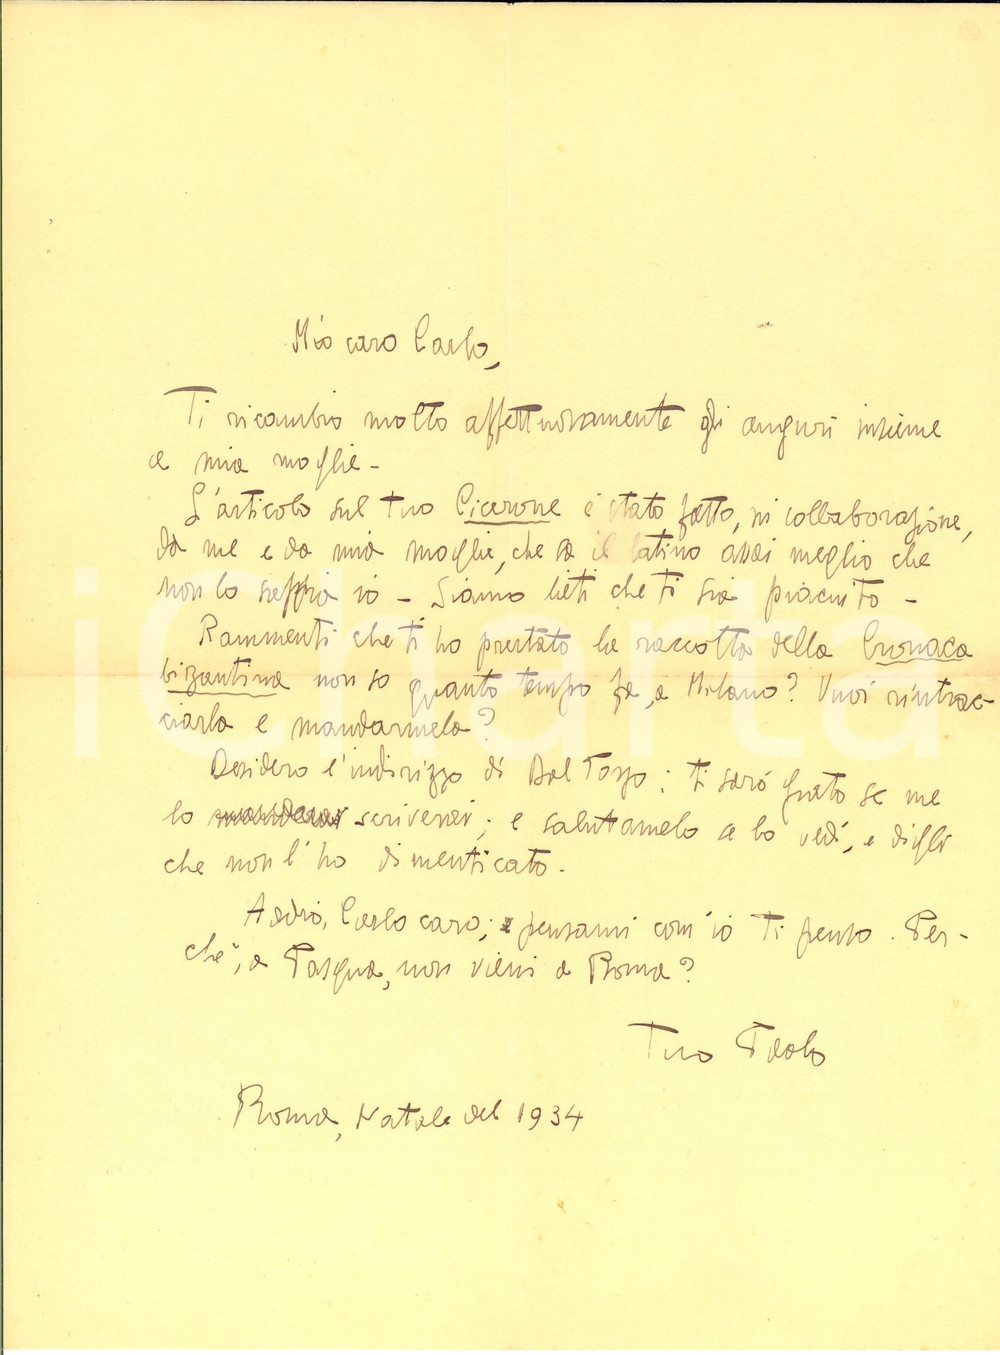 Mio caro Carlo,
Ti ricambio molto affettuosamente gli auguri insieme
a mia moglie -
L'articolo sul tuo Cicerone è stato fatto, in collaborazione,
da me e da mia moglie, che sa il latino assai meglio che
non lo sappia io - Siamo lieti che ti sia piaciuto -
Rammenti che ti ho prestato la raccolta della Cronaca
bizantina non so quanto tempo fa, a Milano? Vuoi rintrac-
ciarla e mandarmela?
Desidero l'indirizzo di Dal Pozzo: ti sarò grato se me
lo scriverai; e salutamelo se lo vedi, e digli
che non l'ho dimenticato.
Addio, Carlo caro; pensami com'io ti penso. Per-
chè, a Pasqua, non vieni a Roma?
Tuo Paolo
Roma, Natale del 1934
iCharta